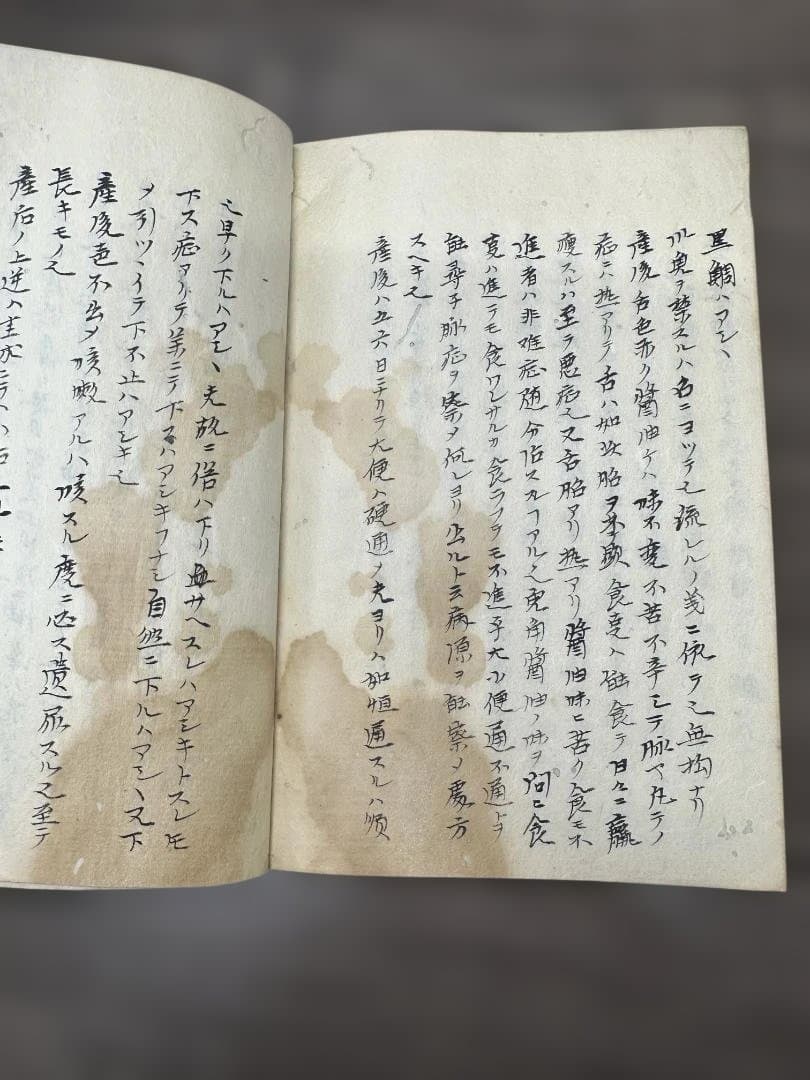 黒鯛ハアシヽ
川魚ヲ禁スルハ名ニヨツテ也流レルノ義ニ依テ也無拘ナリ
産後舌色赤ク醬油ケハ味不変不苦不辛シテ脉ヤ凡テノ
症ニハ熱アリテ舌ハ如故胎ヲ不顕食変ハ能食テ日々ニ羸
瘦スルハ至テ悪症也又舌胎アリ熱アリ醬油味ニ苦ク食モ不
進者ハ非難症随分治スルヿアル也兎角醬油ノ味ヲ問ニ食
ハ進テモ食ワレサルカ食ラフテモ不進乎大小便通不通ヲ
能尋子脉症ヲ察メ何レヨリ出ルト云病原ヲ能察メ處方
スヘキ也
産後ハ五六日ニナリテ大便ハ硬通メ夫ヨリハ如恒通スルハ順
也早ク下ルハアシヽ夫故ニ倍ハ下リ過サヘスレハアシキトスレモ
下ス症アリテ薬ニテ下スハアシキヿナシ自然ニ下ルハアシヽ又下
ヲ引ツヽイテ下不止ハアシキ也
産後声不出メ咳嗽アルハ咳スル度ニ必ス遺尿スル也至テ
長キモノ也
産后ノ上逆ハ